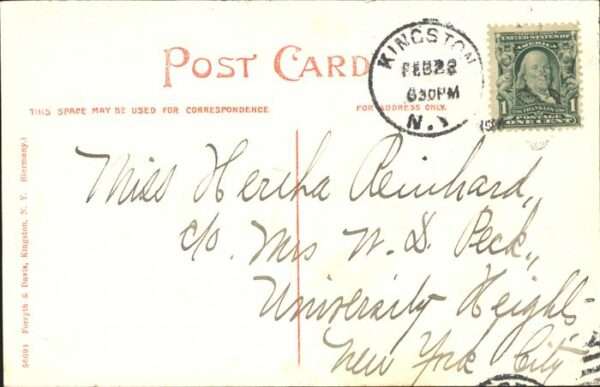 POST CARD
THIS SPACE MAY BE USED FOR CORRESPONDENCE
FOR ADDRESS ONLY.
KINGSTON
FEB 28
630PM
N.Y.
UNITED STATES OF
AMERICA
FRANKLIN
1 1
ONE CENT
Miss Hertha Reinhard,
c/o. Mrs W. D. Peck,
University Heights
New York City
56093 Forsyth & Davis, Kingston, N. Y. (Germany.)